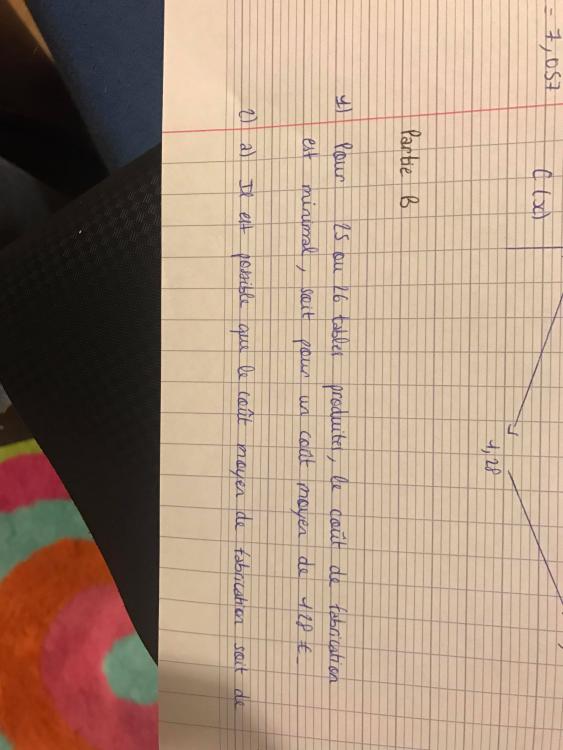 = 7,057
C(x)
1,28
Partie B
1) Pour 25 ou 26 tables produites, le coût de fabrication
est minimal, soit pour un coût moyen de 1,28 €.
2) a) Il est possible que le coût moyen de fabrication soit de